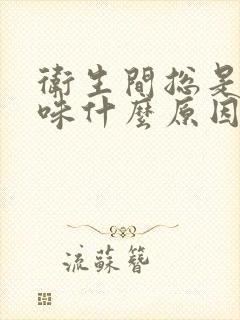 衛生間總是
味什麼原因
流蘇簪